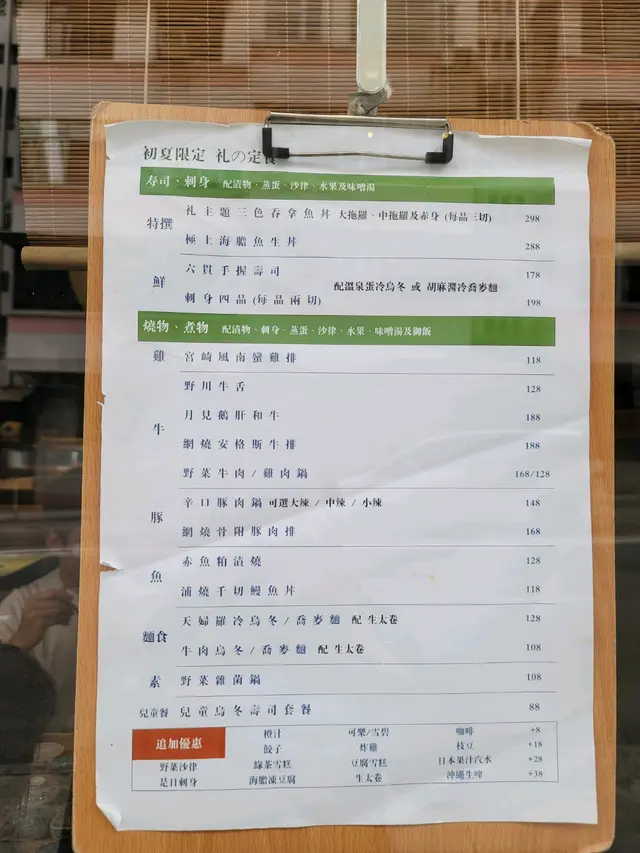 初夏限定 礼の定食
寿司、刺身 配漬物、蒸蛋、沙律、水果及味噌湯
特撰
礼主題三色吞拿魚丼 大拖羅、中拖羅及赤身 (每品三切) 298
極上海膽魚生丼 288
鮮
六貫手握壽司 178
配溫泉蛋冷烏冬 或 胡麻醬冷喬麥麵
刺身四品 (每品兩切) 198
燒物、煮物 配漬物、刺身、蒸蛋、沙律、水果、味噌湯及御飯
雞 宮崎風南蠻雞排 118
牛
野川牛舌 128
月見鵝肝和牛 188
網燒安格斯牛排 188
野菜牛肉/雞肉鍋 168/128
豚
辛口豚肉鍋 可選大辣 / 中辣 / 小辣 148
網燒骨附豚肉排 168
魚
赤魚粕漬燒 128
蒲燒千切鰻魚丼 118
麵食
天婦羅冷烏冬 / 喬麥麵 配 生太卷 128
牛肉烏冬 / 喬麥麵 配 生太卷 108
素 野菜雜菌鍋 108
兒童餐 兒童烏冬壽司套餐 88
追加優惠
橙汁 可樂/雪碧 咖啡 +8
餃子 炸雞 枝豆 +18
野菜沙律 綠茶雪糕 豆腐雪糕 日本果汁汽水 +28
是日刺身 海膽凍豆腐 生太卷 沖繩生啤 +38